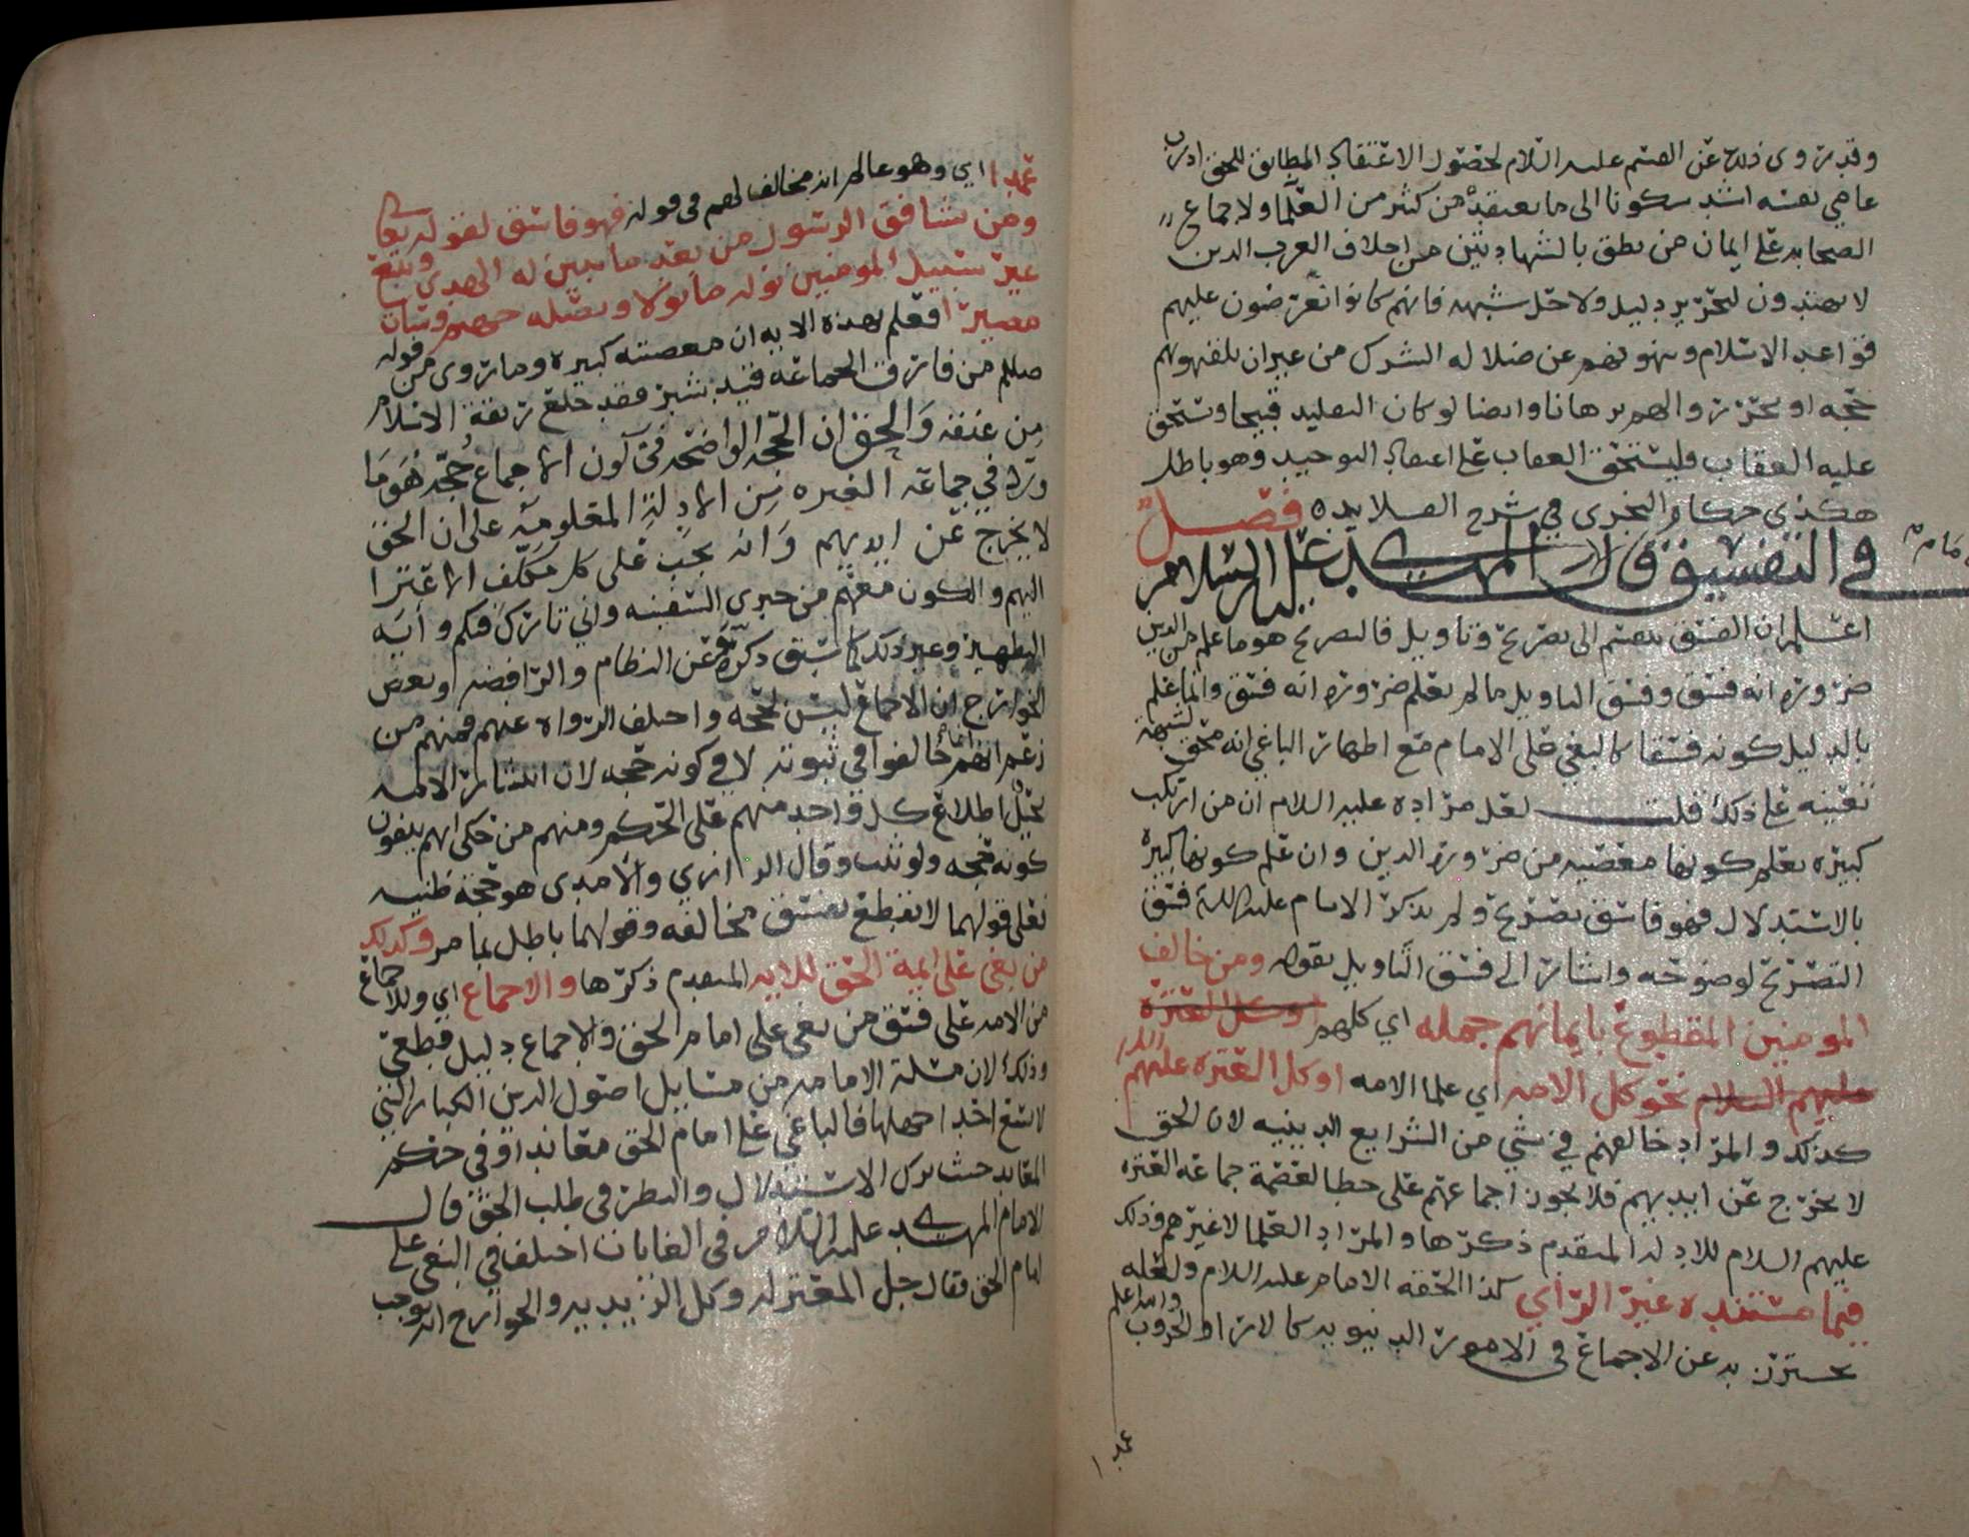 وقد روى ذلك عن القسم عليه السلام لحصول الاعتقاد المطابق للحق اذ رب
عامي نفسه اشد سكونا الى ما يعتقده من كثير من العلما ولاجماع
الصحابه على ايمان من نطق بالشهادتين من اجلاف العرب الذين
لا يهتدون لتحرير دليل ولا حل شبهه فانهم كانوا يعرضون عليهم
قواعد الاسلام وينهونهم عن ضلاله الشرك من غير ان يلقنوهم
حجه او يحرروا لهم برهانا وايضا لو كان التقليد قبيحا وتستحق
عليه العقاب وليستحق العقاب على اعتقاد التوحيد وهو باطل
هكذى حكاه النجرى في شرح القلايد ه فصل
في التفسيق قال المهدي عليه السلام
اعلم ان الفسق ينقسم الى تصريح وتاويل فالتصريح هو ما علم من الدين
ضروره انه فسق وفسق التاويل ما لم يعلم ضروره انه فسق وانما علم
بالدليل كونه فسقا كالبغي على الامام مع اظهار الباغي انه محق لشبهة
تعينه على ذلك قلت لعل مراده عليه السلام ان من ارتكب
كبيره يعلم كونها معصيه من ضروره الدين وان علم كونها كبيره
بالاستدلال فهو فاسق تصريح ولم يذكر الامام عليه السلام فسق
التصريح لوضوحه واشار الى فسق التاويل بقوله ومن خالف
المومنين المقطوع بايمانهم جمله اي كلهم او كل العتره
عليهم السلام نحو كل الامه اي علما الامه او كل العتره عليهم السلام
كذلك والمراد خالفهم في شي من الشرايع الدينيه لان الحق
لا يخرج عن ايديهم فلا يجوز اجماعهم على خطا لعصمة جماعه العتره
عليهم السلام للادله المتقدم ذكرها والمراد العلما لا غيرهم وذلك
فيما مستنده غير الراي كذا الحقه الامام عليه السلام ولعله
يحترز به عن الاجماع في الامور الدنيويه كالاراء والحروب والله اعلم
عمدا
عمدا اي وهو عالم انه مخالف لهم في قوله فهو فاسق لقوله تعالى
ومن يشاقق الرسول من بعد ما تبين له الهدى ويتبع
غير سبيل المومنين نوله ما تولى ونصله جهنم وسات
مصيرا فعلم بهذه الايه ان معصيته كبيره وما روى من قوله
صللم من فارق الجماعه قيد شبر فقد خلع ربقة الاسلام
من عنقه والحق ان الحجه الواضحه في كون الاجماع حجه هو ما
ورد في جماعه العتره من الادلة المعلومه على ان الحق
لا يخرج عن ايديهم وانه يجب على كل مكلف الاعتزا
اليهم والكون معهم من خبرى السفينه واني تارك فيكم وآيه
التطهير وغير ذلك كما سبق ذكره وعن النظام والرافضه او بعض
الخوارج ان الاجماع ليس بحجه واختلف الرواه عنهم فمنهم من
زعم انهم انما خالفوا في ثبوته لا في كونه حجه لان انتشار الامه
يحيل اطلاع كل واحد منهم على الحكم ومنهم من حكى انهم ينفون
كونه حجه ولو ثبت وقال الرازي والآمدى هو حجة ظنيه
فعلى قولهما لا نقطع بفسق مخالفه وقولهما باطل بما مر وكذلك
من بغى على ايمة الحق للايه المتقدم ذكرها والاجماع اي وللاجماع
من الامه على فسق من بغى على امام الحق والاجماع دليل قطعى
وذلك لان مسلة الامامه من مسايل اصول الدين الكبار التي
لا يسع احدا جهلها فالباغي على امام الحق معاند او في حكم
المعاند حيث ترك الاستدلال والنظر في طلب الحق قال
الامام المهدي عليه السلام في الغايات اختلف في البغي على
امام الحق فقال جل المعتزله وكل الزيديه والخوارج انه يوجب